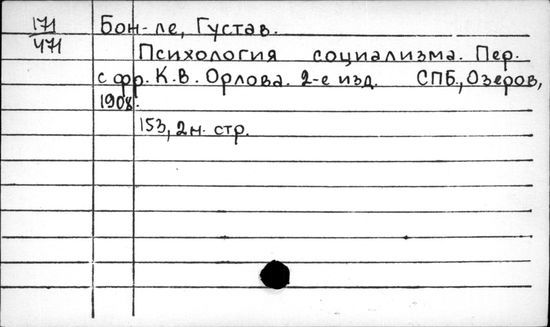 171 Бон-ле, Густав.
471
Психология социализма. Пер.
с фр. К.В. Орлова. 2-е изд. СПБ., Озеров,
1908.
153, 2н. стр.